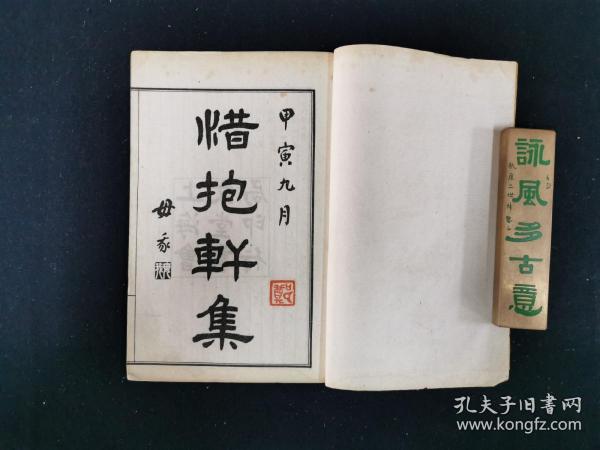 甲寅九月
惜抱軒集
詠風多古意
孔夫子旧书网
www.kongfz.com